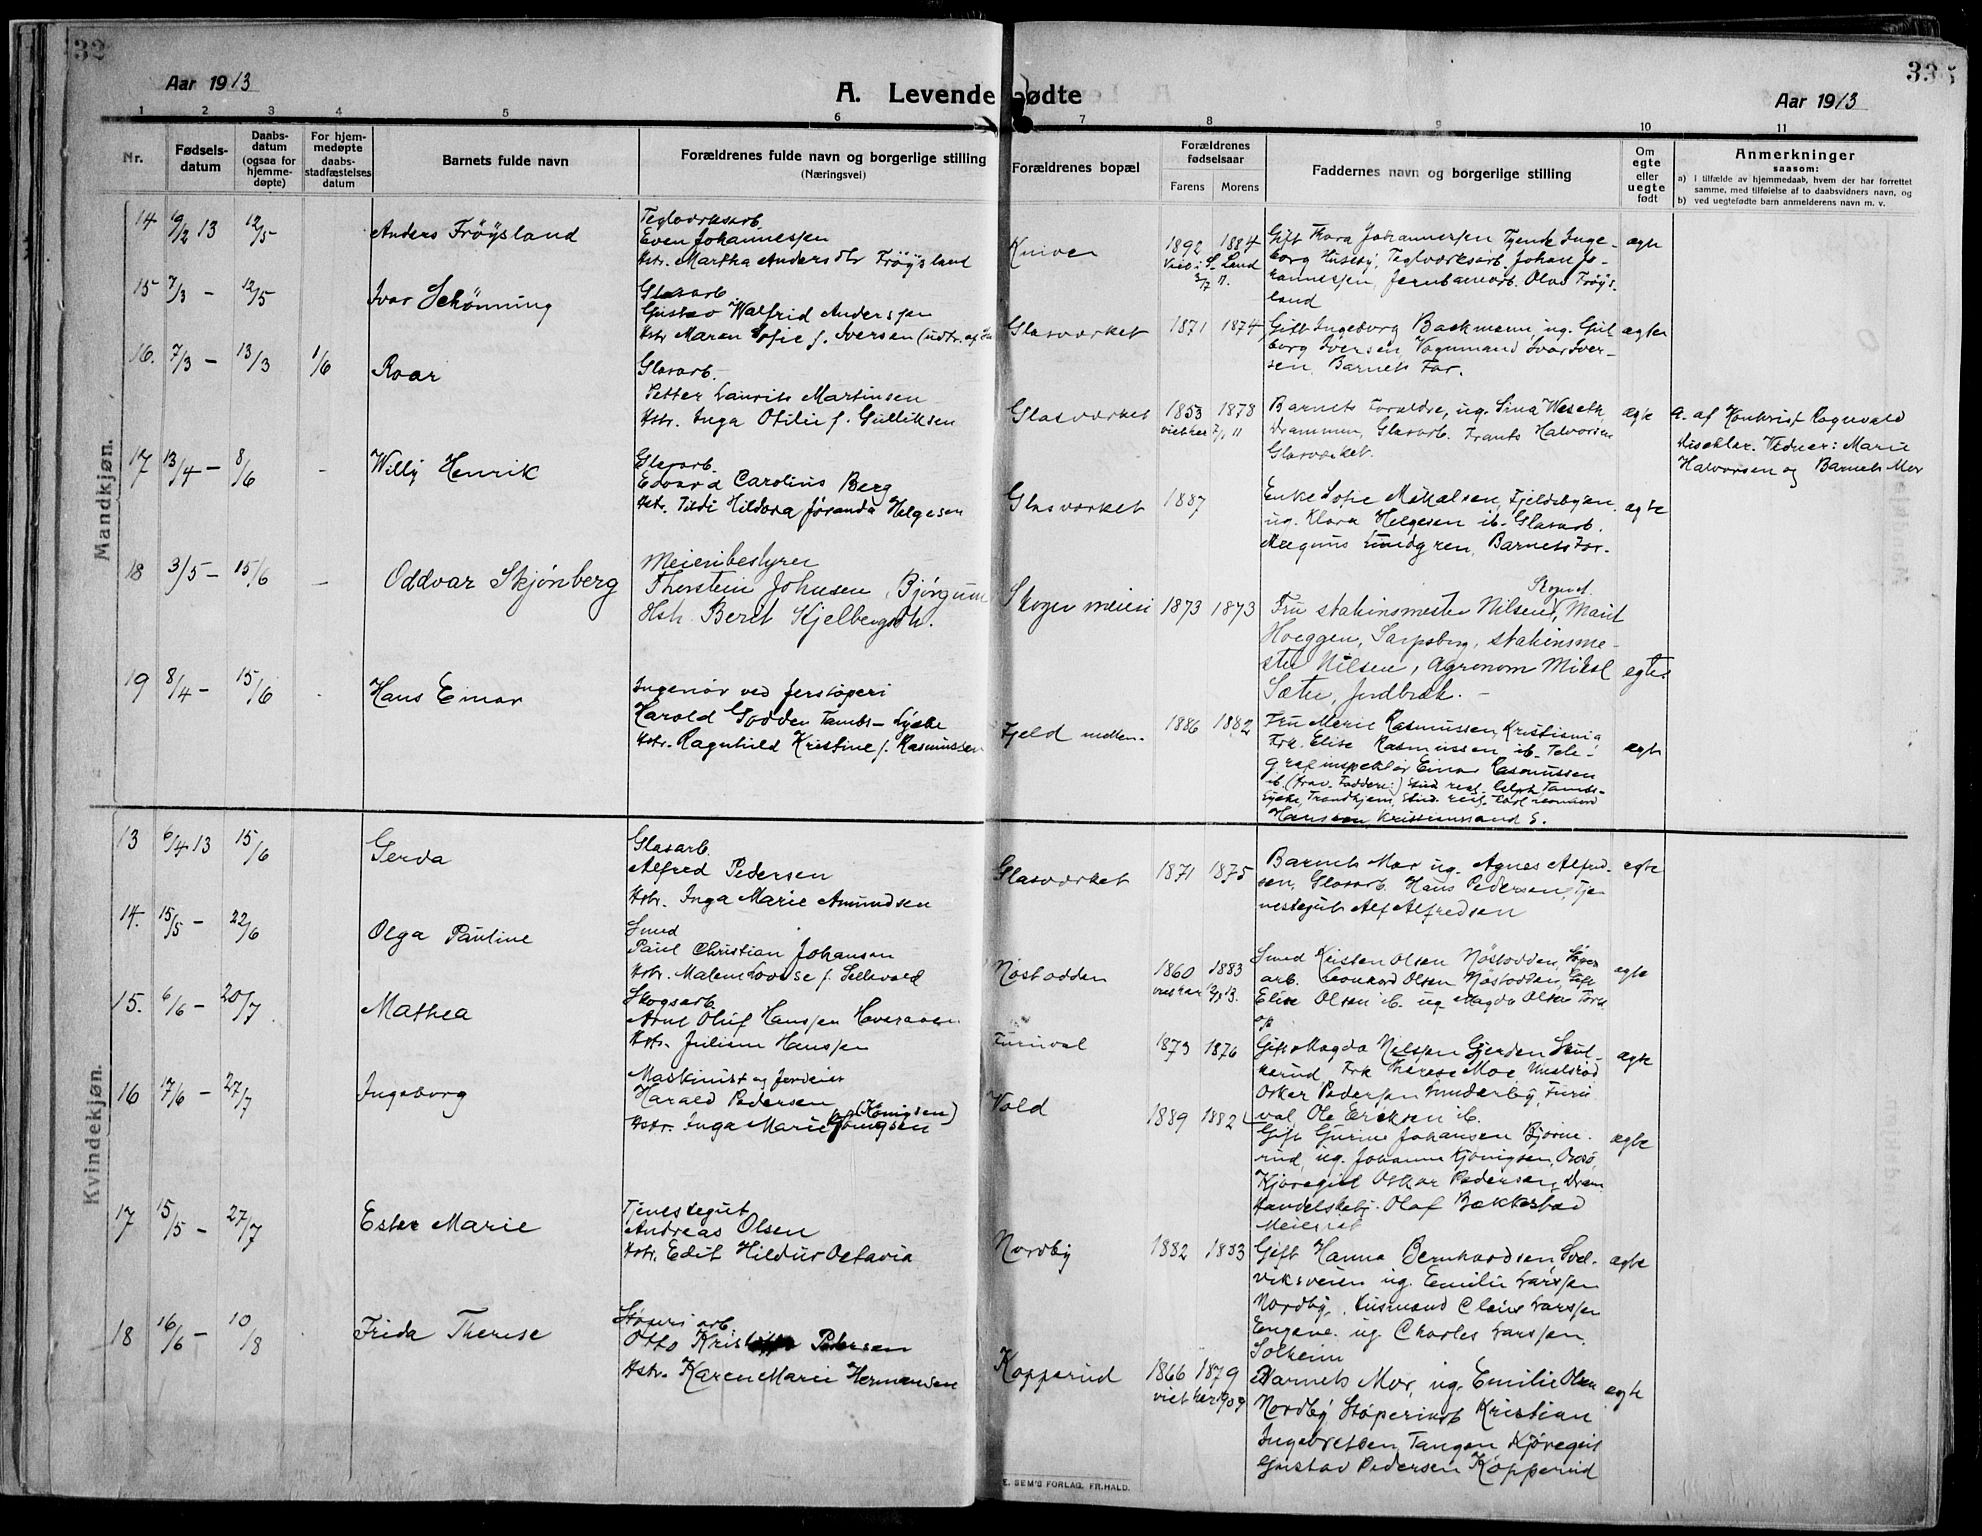 32
33
Aar 1913
A. Levendefødte
Aar 1913
1 2 3 4 5 6 7 8 9 10 11
Nr.
Fødsels-
datum
Daabs-
datum
(ogsaa for
hjemme-
døpte)
For hjem-
medøpte
daabs-
stadfæstelses
datum
Barnets fulde navn
Forældrenes fulde navn og borgerlige stilling
(Næringsvei)
Forældrenes bopæl
Forældrenes
fødselsaar
Farens Morens
Faddernes navn og borgerlige stilling
Om
egte
eller
uegte
født
Anmerkninger
saasom:
a) I tilfælde av hjemmedaab, hvem der har forrettet
samme, med tilføielse af to daabsvidners navn, og
b) ved uegtefødte barn anmelderens navn m. v.
Mandkjøn.
14 19/2 13 12/5 Anders Frøysland
Teglverksarb.
Even Johannessen
Hstr. Martha Andersdtr Frøysland
Kniven 1892 1884
Gift Thora Johannessen, Tjende Inge-
borg Huseby, Teglverksarb. Johan Jo-
hannessen, Jernbanearb. Olav Frøys-
land
ægte
15 7/3 – 12/5 Ivar Schønning
Glasarb.
Gustav Walfrid Anderssen
Hstr Maren Sofie f. Iversen
Glasværket 1871 1874
Gift Ingeborg Backmann, ug. Gul-
borg Iversen, Vognmand Ivar Iver-
sen, Barnets Far.
ægte
16. 7/3 – 13/3 1/6 Roar
Glasarb.
Petter Laurits Martinsen
Hstr. Inga Otilie f. Gulliksen
Glasværket 1853 1878
Barnets Forældre, ug. Sina Weseth
Drammen, Glasarb. Frants Halvorsen
Glasværket.
ægte
a. af Haandv. Ragnvald
Vidner: Marie
Halvorsen og Barnets Mor
17 13/4 – 8/6 – Willy Henrik
Glasarb.
Edvard Carolius Berg
Hstr. Tildi Hildora Joranda Helgesen
Glasværket 1887
Enke Sofie Mikalsen, Fjeldsbyen
ug. Klara Helgesen ib. Glasarb.
Magnus Lundgren, Barnets Far.
ægte
18 3/5 – 15/6 – Oddvar Skjønberg
Meieribestyrer
Thorstein Johnsen, Bjørgum
Hstr. Berit Kjelbergsdt.
Skoger meieri 1873 1873
Fru stationsmester Nilsen, Marit
Hoeggen, Sarpsborg, stationsme-
ster Nilsen, Agronom Mikal
Sæter, Jordbræk. –
egte
19 8/4 – 15/6 Hans Einar
Ingeniør ved jerstøperi
Harald Godden Tambs-Lyche
Hstr. Ragnhild Kristine f. Rasmussen
Fjeld mellem. 1886 1882
Fru Marie Rasmussen, Kristiania
Frk. Elise Rasmussen, ib. Tele-
grafinspektør Einar Rasmussen
ib. (frav. Faddere:) Stud. real. Ralph Tambs-
Lyche, Trondhjem, Stud. real. Carl
Hanssen, Kristianssand S.
egte
Kvindekjøn.
13 6/4 13 15/6 Gerda
Glasarb.
Alfred Pedersen
Hstr. Inga Marie Amundsen
Glasværket 1871 1875
Barnets Mor, ug. Agnes Alfred-
sen, Glasarb. Hans Pedersen, Tje-
nestegut Alf Alfredsen
egte
14. 15/5 – 22/6 Olga Pauline
Smed
Paul Christian Johansen
Hstr. Malene Lovise f. Sellevold
Nøstodden 1860 1883
Smed Kristen Olsen Nøstodden, Støper
arb. Leonard Olsen Nøstodden, Gift
Elise Olsen ib. ug. Magda Olsen
egte
15. 6/6 – 20/7 Mathea
Skogsarb.
Arnt Oluf Hanssen
Hstr. Juliane Hanssen
Furuval 1873 1876
Gift Magda Nilssen Gjerden
Frk Therese Moe
Oskar Pedersen Sunderby, Furu-
val, Ole Eriksen ib.
ægte
16 17/6 – 27/7 Ingeborg
Maskinist og jordeier
Harald Pedersen
Hstr. Inga Marie Kønigsen (Kønigsen)
Vold 1889 1882
Gift Gurine Johansen Bjørne-
rud, ug. Johanne Kjønigsen,
Kjøregut Oskar Pedersen, Dram.
Handelsbetj. Olaf Bakkestad
Meieriet
ægte
17 15/5 – 27/7 Ester Marie
Tjenestegut
Andreas Olsen
Hstr. Edit Hildur Octavia
Nordby 1882 1883
Gift Hanna Bernhardsen, Svel-
viksveien ug. Emilie Larssen
Nordby, Husmand Claus Larssen
Engene. ug. Charles Larssen,
Solheim
ægte
18 16/6 – 10/8 Frida Therese
Støperiarb.
Otto Pedersen
Hstr. Karen Marie Hermansen
Kopperud 1866 1879
Barnets Mor, ug. Emilie Olsen
Nordby Støperiarb Kristian
Ingebretsen, Tangen, Kjøregut
Gustav Pedersen Kopperud
egte
E. SEM'S FORLAG, FR.HALD.